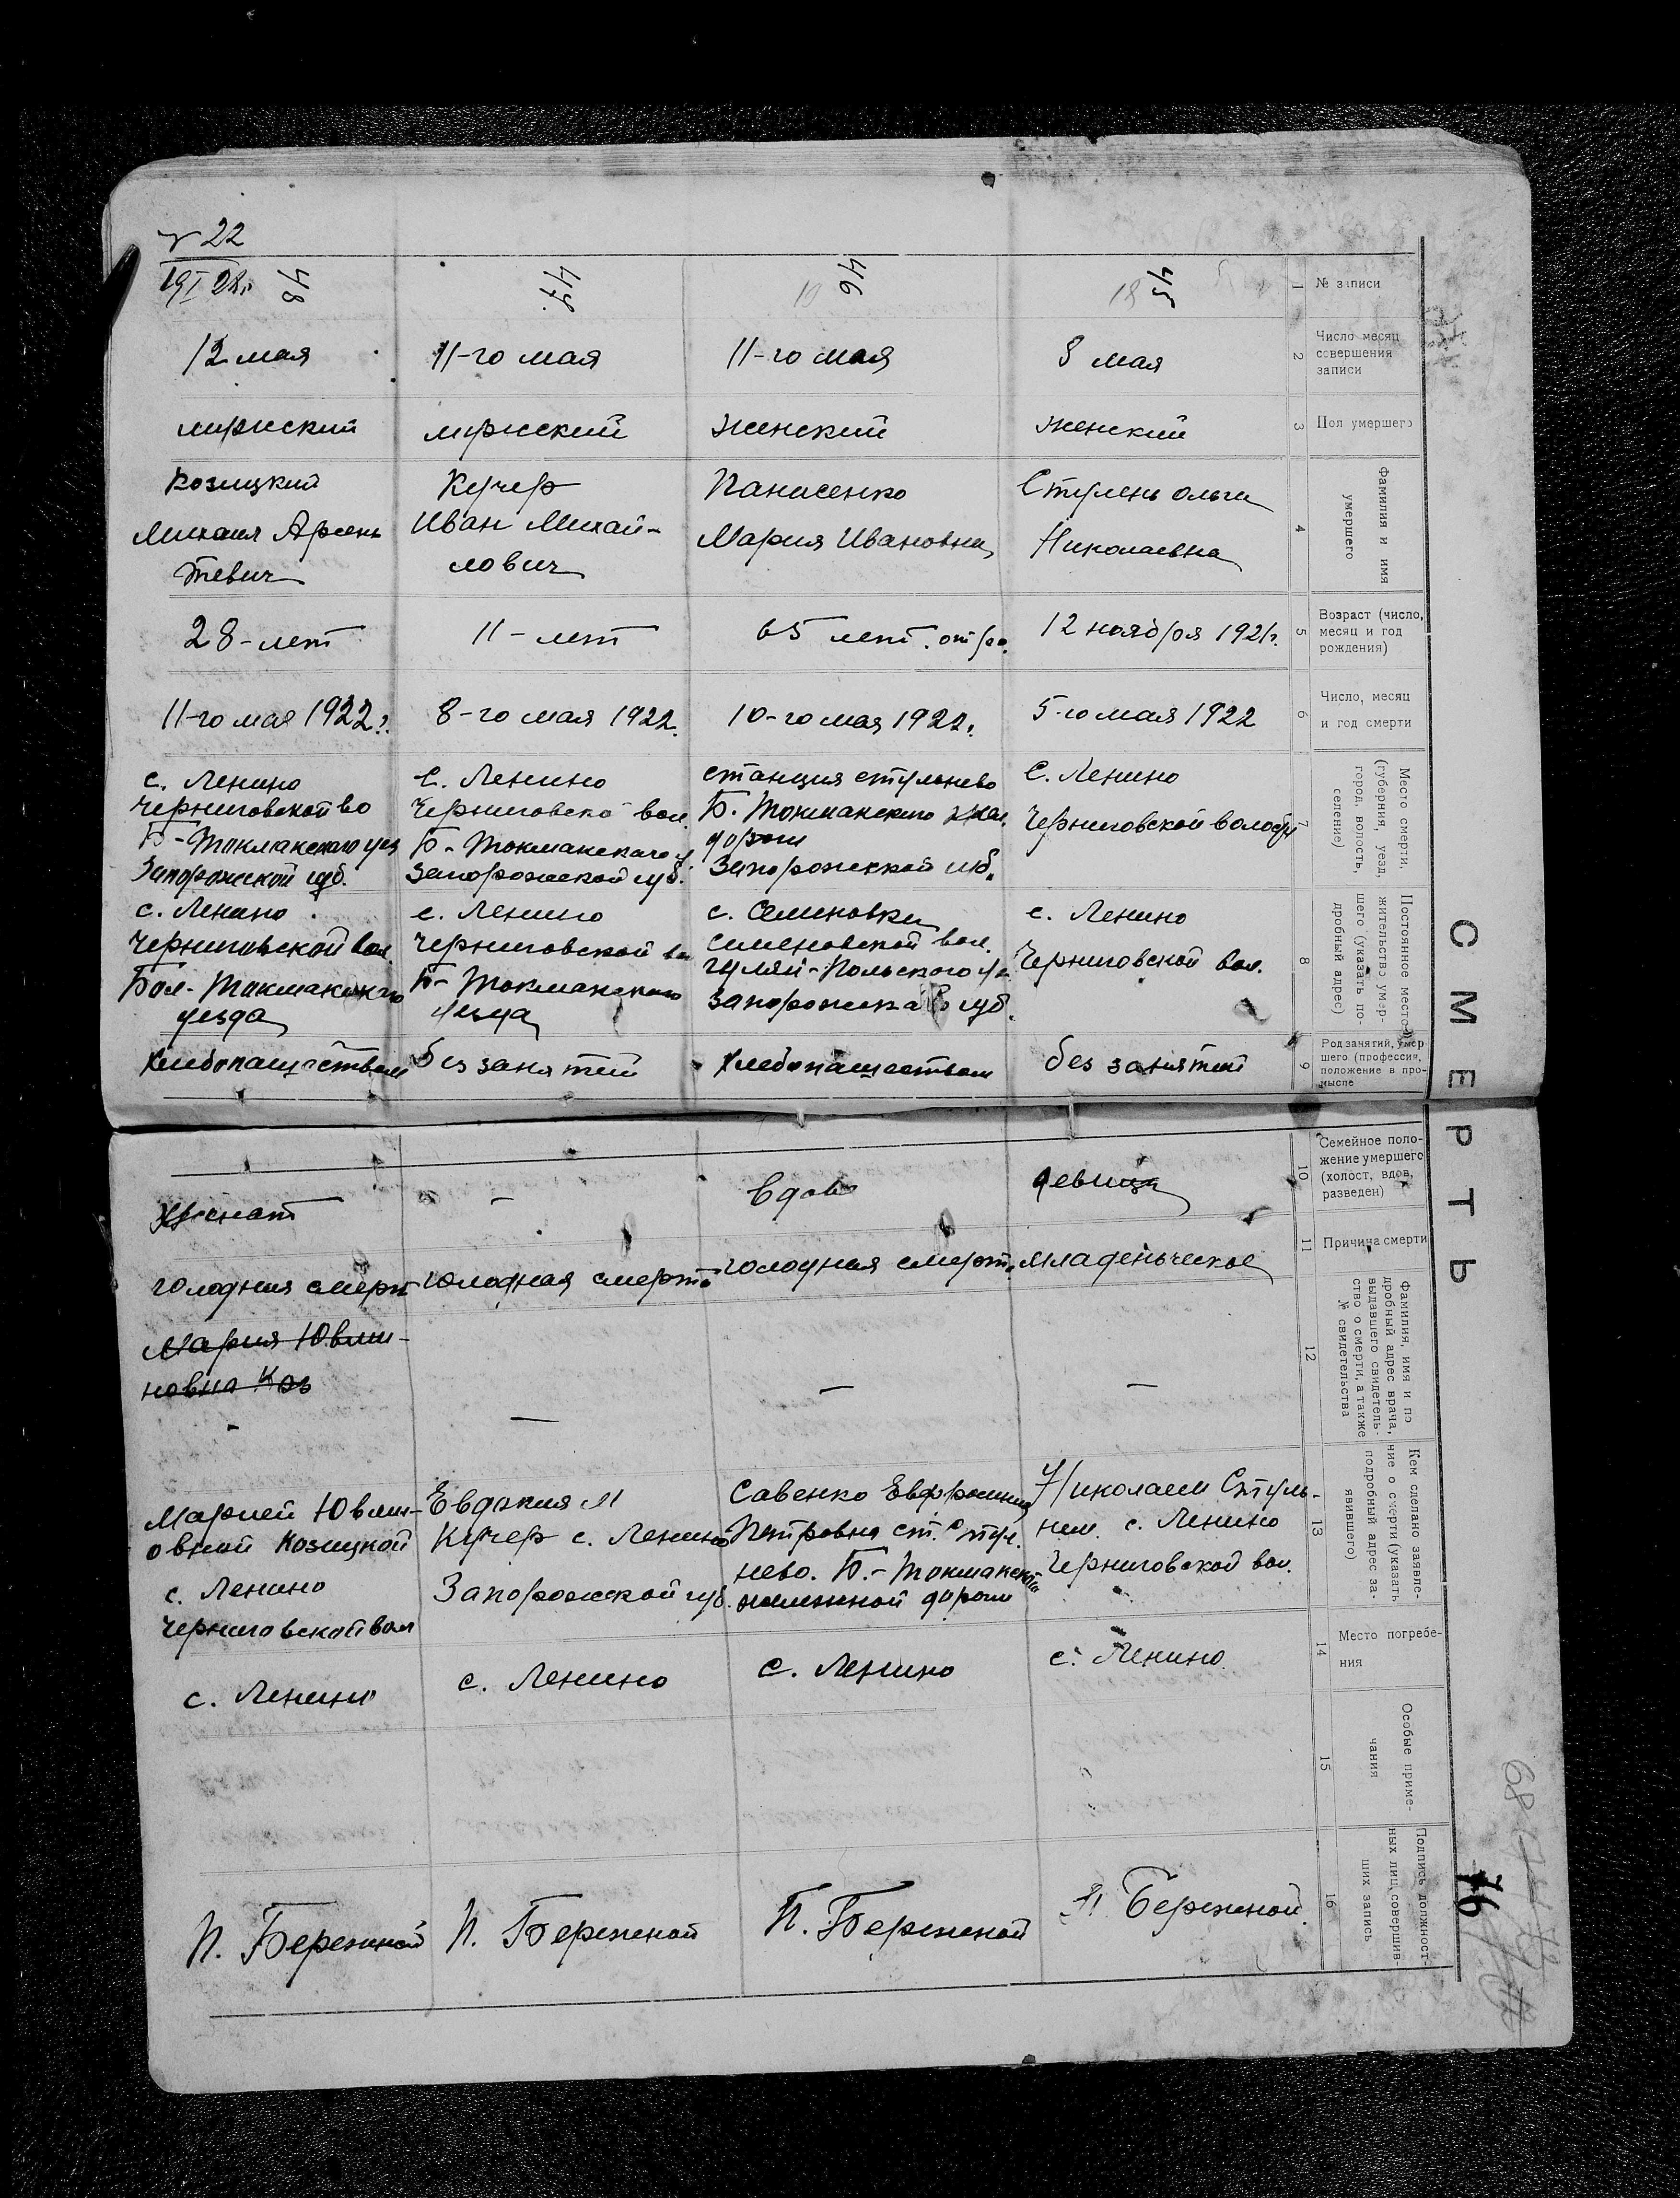 СМЕРТЬ
76
1
№ записи
2
Число месяц
совершения
записи
3
Пол умершего
4
Фамилия и имя
умершего
5
Возраст (число,
месяц и год
рождения)
6
Число, месяц
и год смерти
7
Место смерти.
(губерния, уезд,
город, волость,
селение)
8
Постоянное место-
жительство умер-
шего (указать по-
дробный адрес)
9
Род занятий, умер
шего (профессия,
положение в про-
мысле
10
Семейное поло-
жение умершего
(холост, вдов,
разведен)
11
Причина смерти
12
Фамилия, имя и по
дробный адрес врача,
выдавшего свидетель-
ство о смерти, а также
№ свидетельства
13
Кем сделано заявле-
ние о смерти (указать
подробный адрес за-
явившего)
14
Место погребе-
ния
15
Особые приме-
чания
16
Подпись должност-
ных лиц, совершив-
ших запись
45
18
8 мая
женский
Стулень Ольга
Николаевна
12 ноября 1921г.
5-го мая 1922
С. Ленино
Черниговской волости
с. Ленино
Черниговской вол.
без занятий
девица
младенческое
—
Николаем Стуль-
нем. с. Ленино
Черниговской вол.
с. Ленино
П. Бережной
46
19
11-го мая
женский
Панасенко
Мария Ивановна
65 лет. от ро.
10-го мая 1922г.
станция стульнево
Б. Токмакского жел.
дороги
Запорожской губ.
с. Семеновка
Семеновской вол.
Гуляй-Польского у.
Запорожской губ.
Хлебопашеством
вдова
голодная смерть
—
Савенко Евфросиния
Петровна ст. Стул.
нево. Б.-Токмакской
железной дороги
с. Ленино
П. Бережной
47.
11-го мая
мужский
Кучер
Иван Михай-
лович
11-лет
8-го мая 1922.
С. Ленино
Черниговской вол.
Б-Токмакского у.
Запорожской губ.
с. Ленино
Черниговской вол
Б-Токмакского
уезда
без занятий
—
голодная смерть
—
Евдокия М
Кучер с. Ленино
Запорожской губ.
с. Ленино
П. Бережной
22
19/I 28г.
48
12 мая
мужский
Козицкий
Михаил Арсень
тевич
28-лет
11-го мая 1922г.
с. Ленино
Черниговской во
Б-Токмакского уез
Запорожской губ.
с. Ленино
Черниговской вол.
Бол-Токмакского
уезда
Хлебопашеством
женат
голодная смерть
Мария Ювли-
новна Коз
-
Марией Ювлин-
овной Козицкой
с. Ленино
Черниговской вол
с. Ленино
П. Бережной